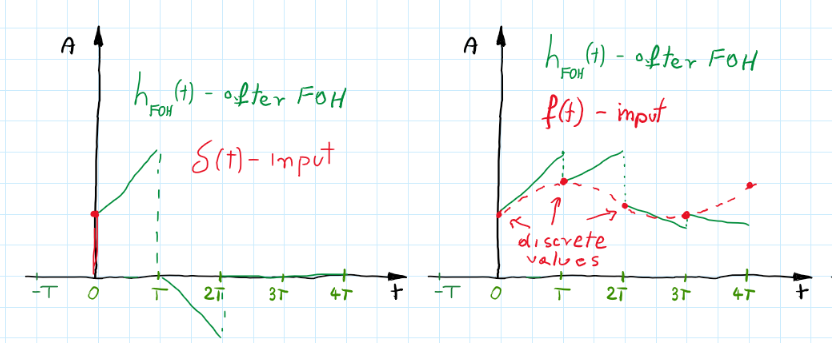 A
h_FOH(t) - after FOH
δ(t) - input
-T 0 T 2T 3T 4T t
A
h_FOH(t) - after FOH
f(t) - input
discrete
values
-T 0 T 2T 3T 4T t